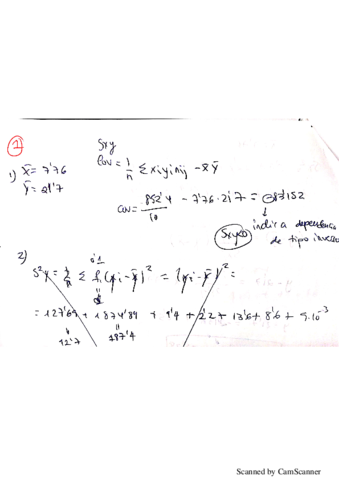 1
Sxy
1) x̄ = 7'76   Cov = 1/n Σ xi yi nij - x̄ ȳ
ȳ = 21'7
Cov = 852'4/10 - 7'76 · 21'7 = -83'152
↓
Sxy<0   indica dependencia
de tipo inversa
2)
S²y = 1/n Σ fi (yi - ȳ)² = (yi - ȳ)² =
= 127'69 + 1874'89 + 1'4 + 2'2 + 13'6 + 8'6 + 9·10⁻³
12'7   187'4
Scanned by CamScanner